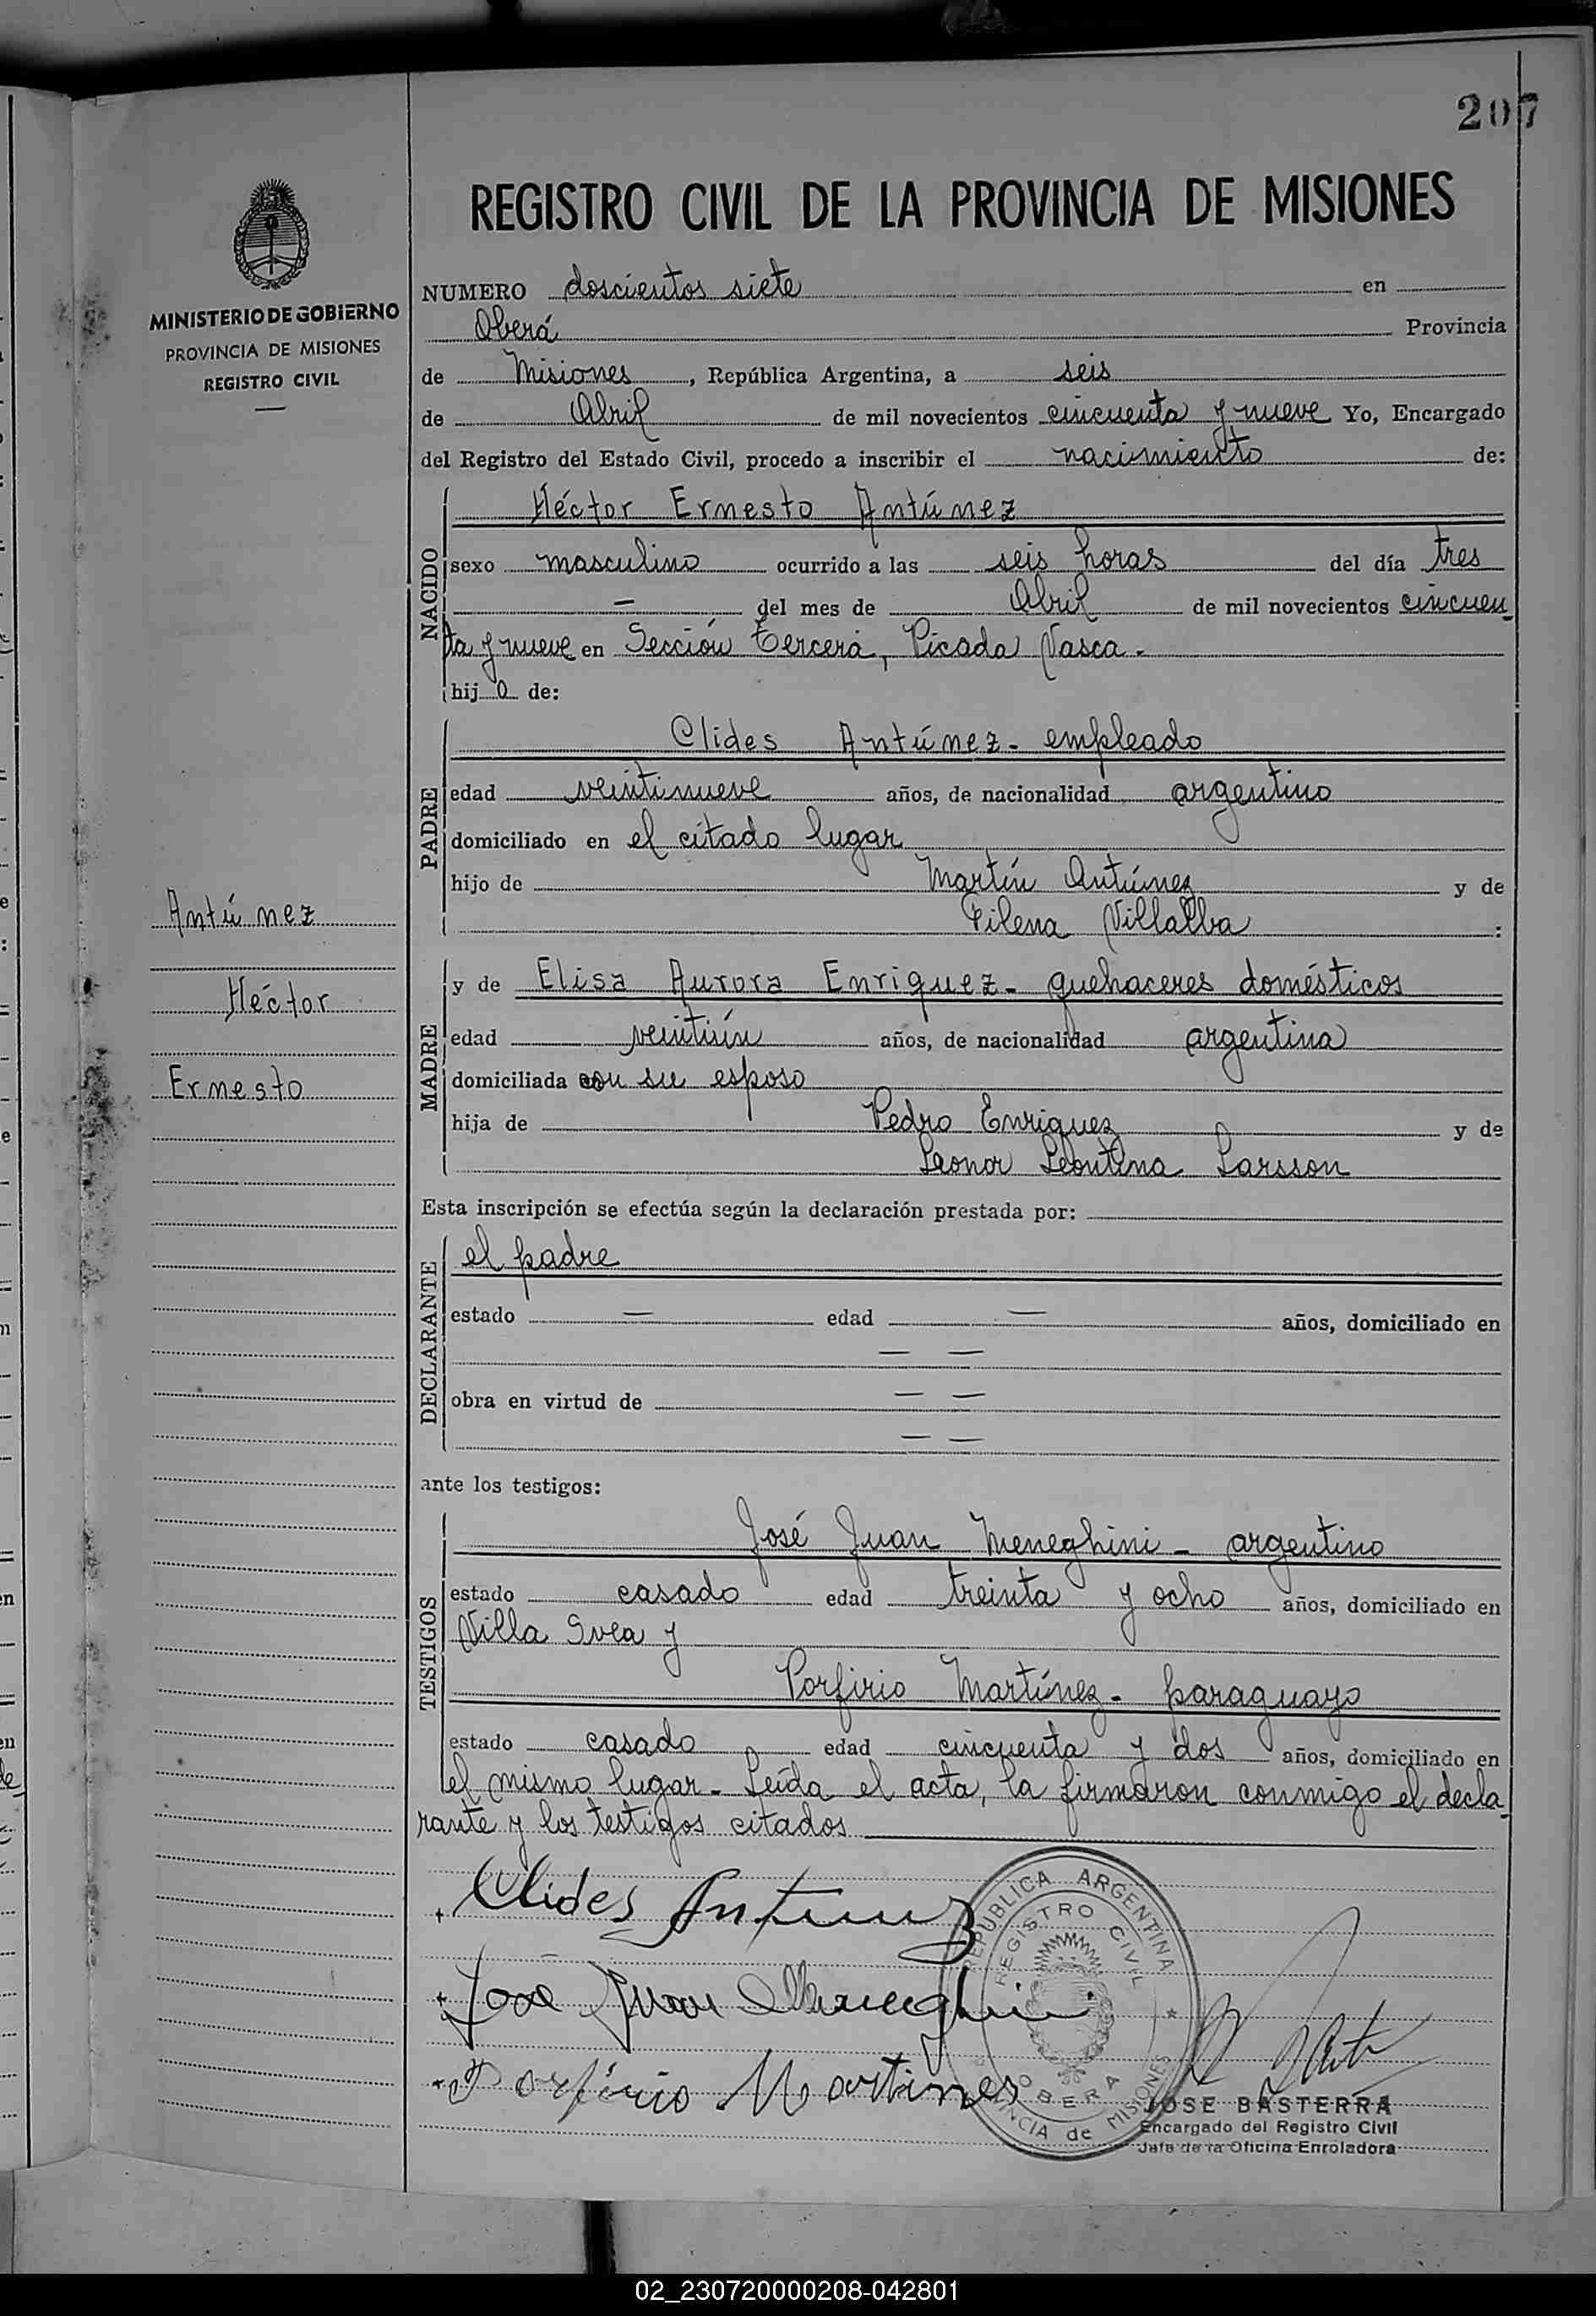 207
REGISTRO CIVIL DE LA PROVINCIA DE MISIONES
MINISTERIO DE GOBIERNO
PROVINCIA DE MISIONES
REGISTRO CIVIL
NUMERO doscientos siete en
Oberá Provincia
de Misiones, República Argentina, a seis
de Abril de mil novecientos cincuenta y nueve Yo, Encargado
del Registro del Estado Civil, procedo a inscribir el nacimiento de:
NACIDO
Héctor Ernesto Antúnez
sexo masculino ocurrido a las seis horas del día tres
— del mes de Abril de mil novecientos cincuen
ta y nueve en Sección Tercera, Picada Vasca.-
hijo de:
PADRE
Clides Antúnez - empleado
edad veintinueve años, de nacionalidad argentino
domiciliado en el citado lugar
hijo de Martín Antúnez y de
Villalba :
Antúnez
Héctor
Ernesto
MADRE
y de Elisa Aurora Enriquez - quehaceres domésticos
edad veintiún años, de nacionalidad argentina
domiciliada con su esposo
hija de Pedro Enriquez y de
Leonor Leontina Larsson
Esta inscripción se efectúa según la declaración prestada por:
DECLARANTE
el padre
estado — edad — años, domiciliado en
— —
obra en virtud de — —
— —
ante los testigos:
TESTIGOS
José Juan Meneghini - argentino
estado casado edad treinta y ocho años, domiciliado en
Villa Svea y
Porfirio Martínez - paraguayo
estado casado edad cincuenta y dos años, domiciliado en
el mismo lugar - Leída el acta, la firmaron conmigo el decla-
rante y los testigos citados
Clides Antunez
José Juan Meneghini
Porfirio Martines
REPUBLICA ARGENTINA
REGISTRO CIVIL
OBERA
PROVINCIA de MISIONES
JOSE BASTERRA
Encargado del Registro Civil
Jefe de la Oficina Enroladora
02_230720000208-042801